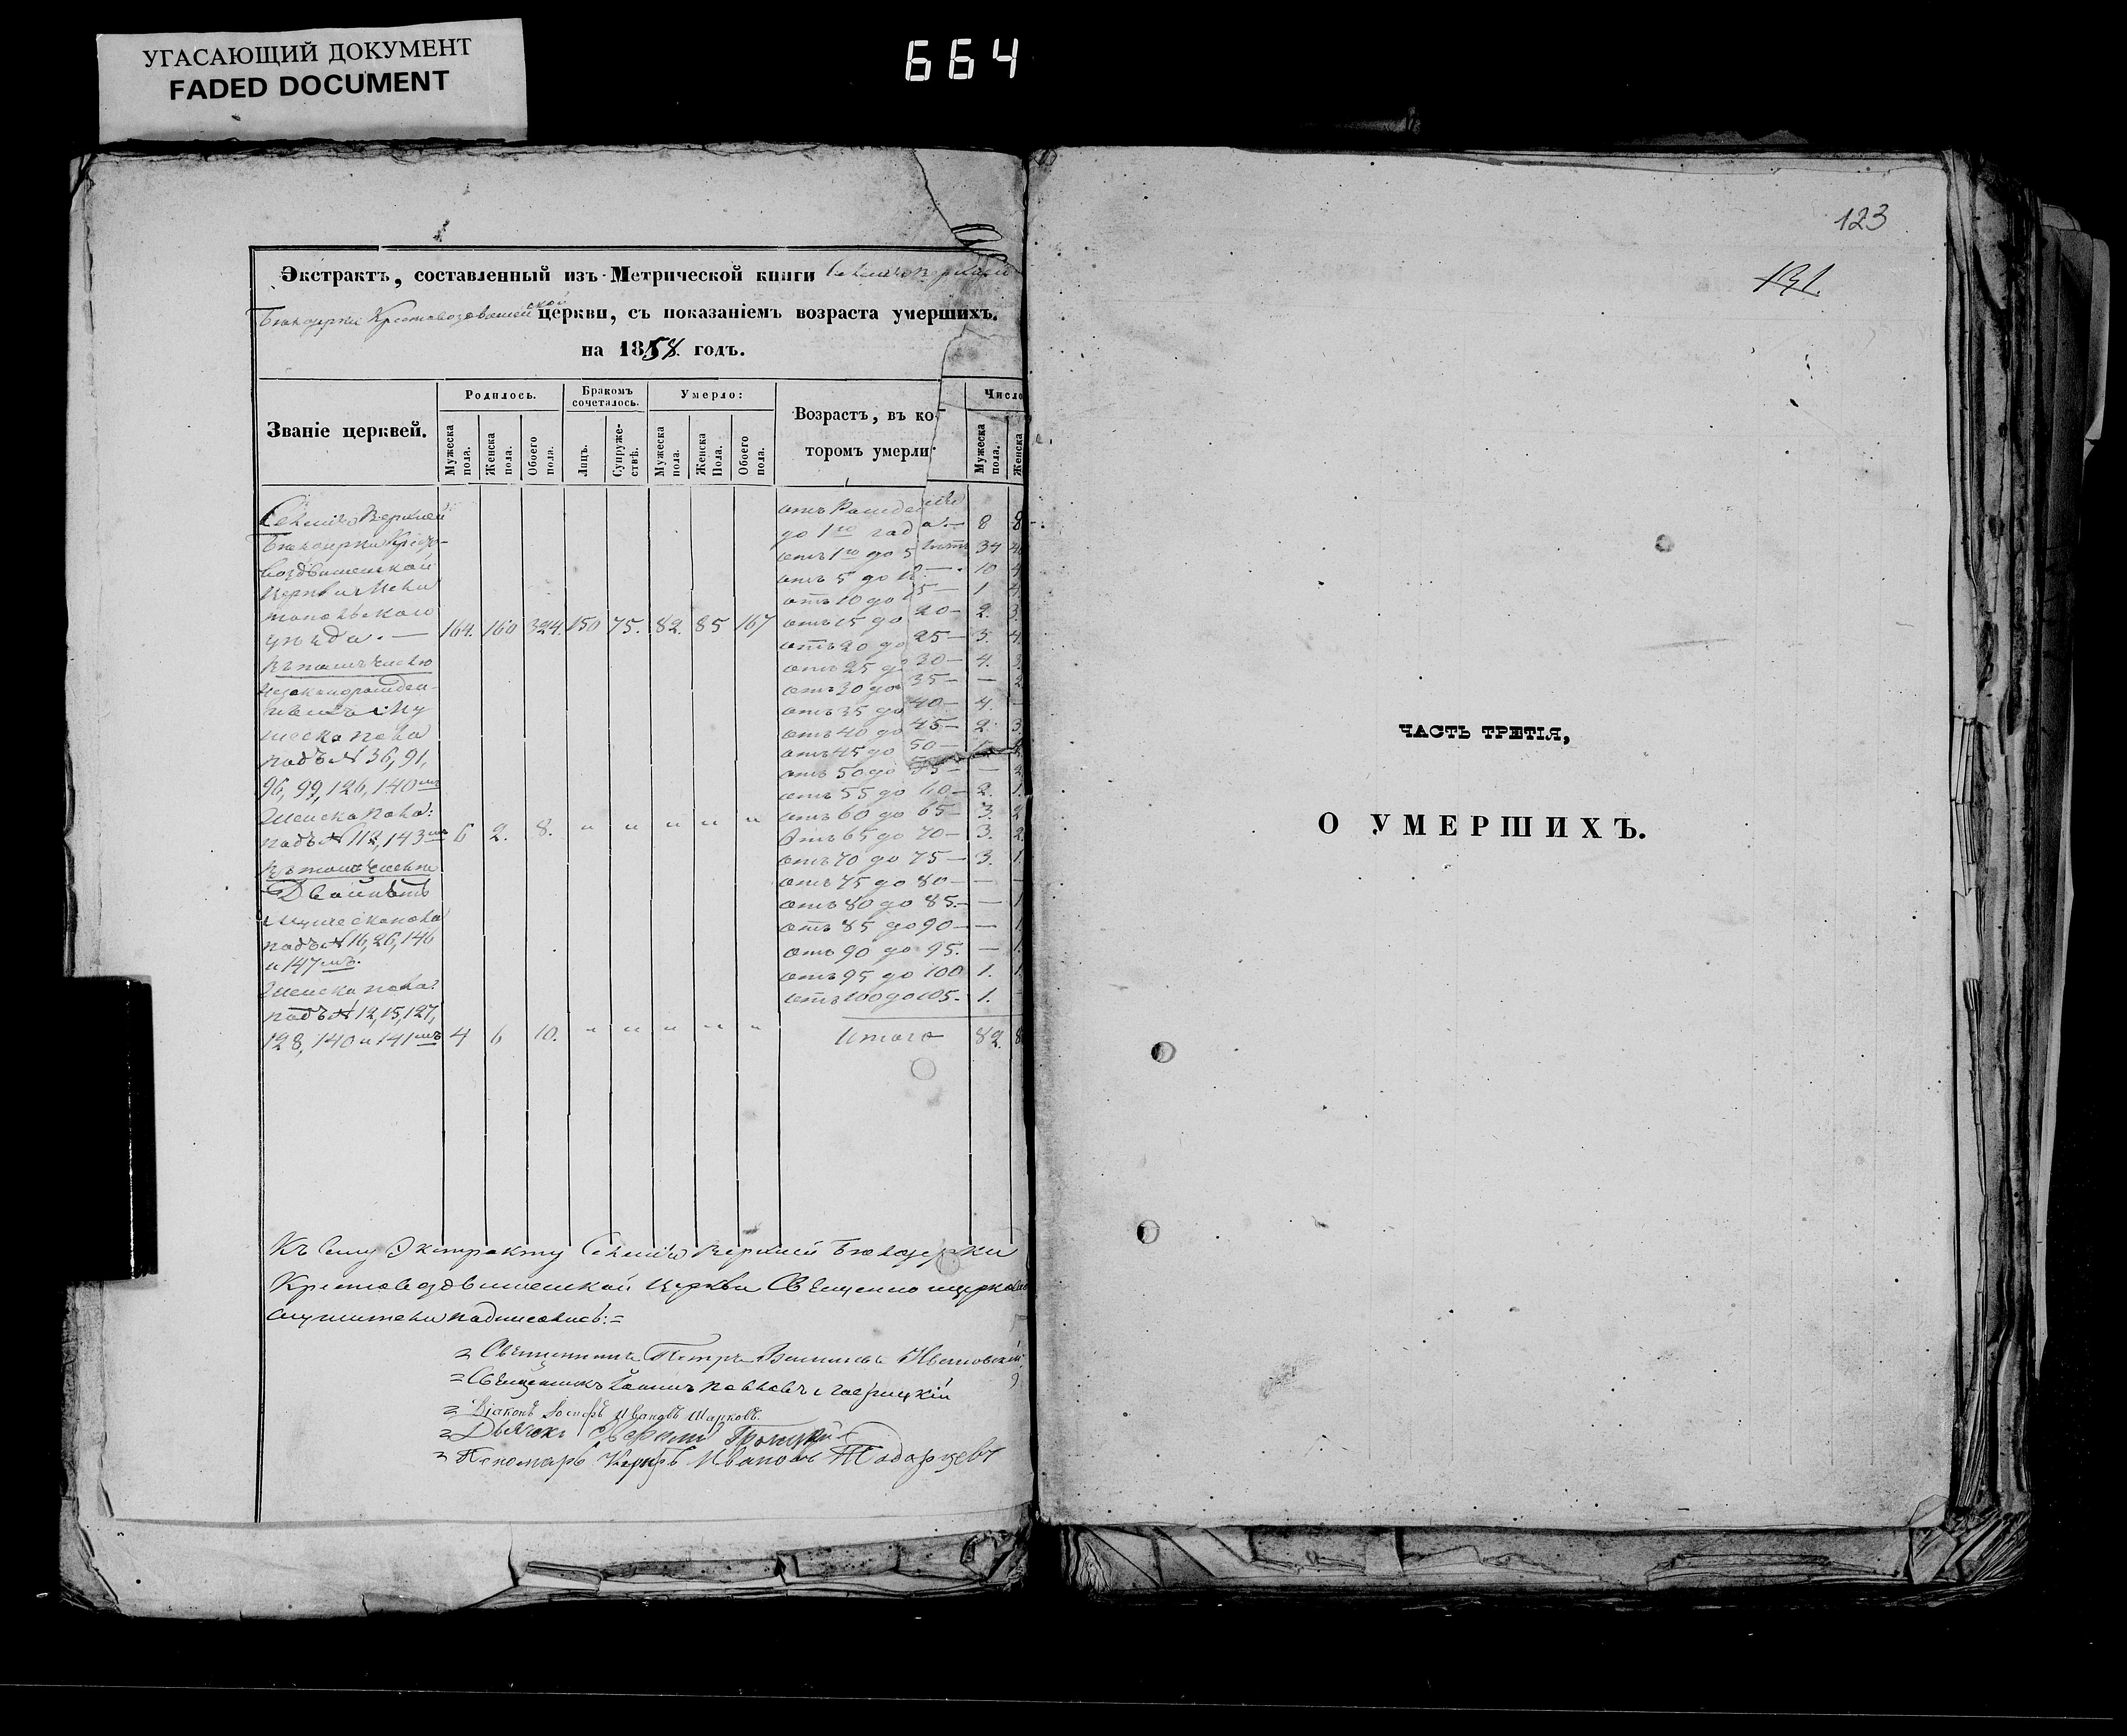 УГАСАЮЩИЙ ДОКУМЕНТ
FADED DOCUMENT
664
Экстрактъ, составленный изъ Метрической книги
церкви, съ показаніемъ возраста умершихъ.
на 1858 годъ.
Званіе церквей.
Родилось.
Бракомъ сочеталось.
Умерло:
Возрастъ, въ ко-
торомъ умерли
Число
Мужеска пола.
Женска пола.
Обоего пола.
Лицъ.
Супруже-ствъ.
Мужеска пола.
Женска Пола.
Обоего пола.
Мужеска пола.
Женска
Селенія Верхней
Бюлджерки Кресто-
воздвиженской
Церкви
уѣзда. — 164. 160 324. 150 75. 82. 85 167
Въ томъ числѣ
незаконорожден-
ныхъ: Му
жеска пола
подъ № 36, 91,
96, 99, 126, 140мъ
Женска пола:
подъ № 112, 143мъ 6 2. 8. " " " " "
Въ томъ числѣ
Двойнятъ
Мужеска пола
подъ № 16, 26, 146
и 147мъ.
Женска пола
подъ № 12, 15, 127,
128, 140 и 141мъ 4 6 10. " " " " "
отъ Рожденія
до 1го года — 8 8
отъ 1го до 5 лѣтъ 34
отъ 5 до 10 — 10 4
отъ 10 до 15 — 1 4.
отъ 15 до 20 — 2. 3.
отъ 20 до 25 — 3. 4.
отъ 25 до 30 — 4. 3.
отъ 30 до 35 — — 2
отъ 35 до 40 — 4.
отъ 40 до 45 — 2. 3
отъ 45 до 50 —
отъ 50 до 55 — — 2
отъ 55 до 60 — 2. 1.
отъ 60 до 65 — 3. 2
отъ 65 до 70 — 3. 2.
отъ 70 до 75 — 3. 1.
отъ 75 до 80 — — —
отъ 80 до 85. — — 1
отъ 85 до 90 — — 1
отъ 90 до 95. — 1.
отъ 95 до 100 1. 1.
отъ 100 до 105. 1.
Итого 82. 8
Къ сему Экстракту Селенія Верхней Бюлджерки
Крестовоздвиженской Церкви Священно церковно
служители подписались:=
= Священникъ Петръ
= Священникъ Іоаннъ Павловъ
= Діаконъ Іосифъ Ивановъ Шарковъ.
= Дьячекъ
= Пономарь Ивановъ
123
131.
ЧАСТЬ ТРЕТІЯ,
О УМЕРШИХЪ.